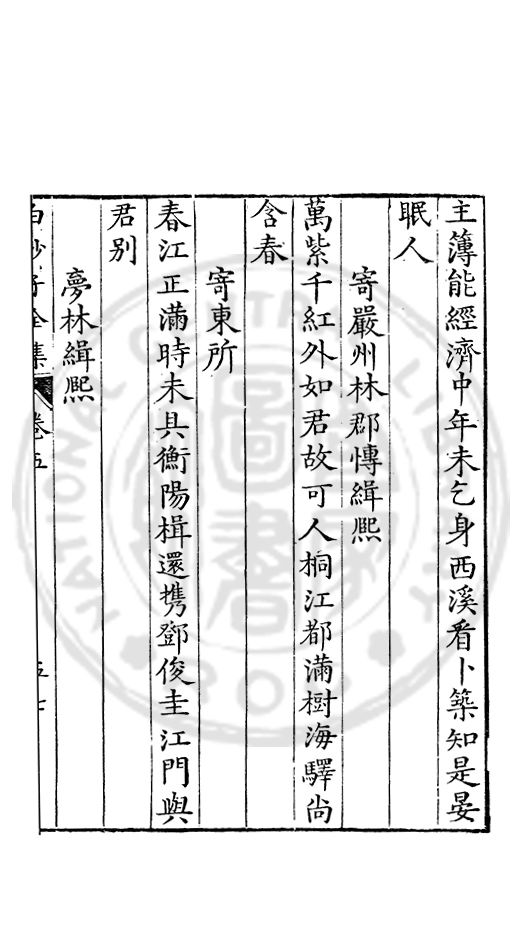 主簿能經濟中年未乞身西溪看卜築知是晏
眠人
寄嚴州林郡慱緝熈
萬紫千紅外如君故可人桐江都滿樹海驛尙
含春
寄東所
春江正滿時未具衡陽楫還携鄧俊圭江門與
君别
夢林緝熈
白沙子全集 卷五 五七
NATIONAL CENTRAL LIBRARY
圖書